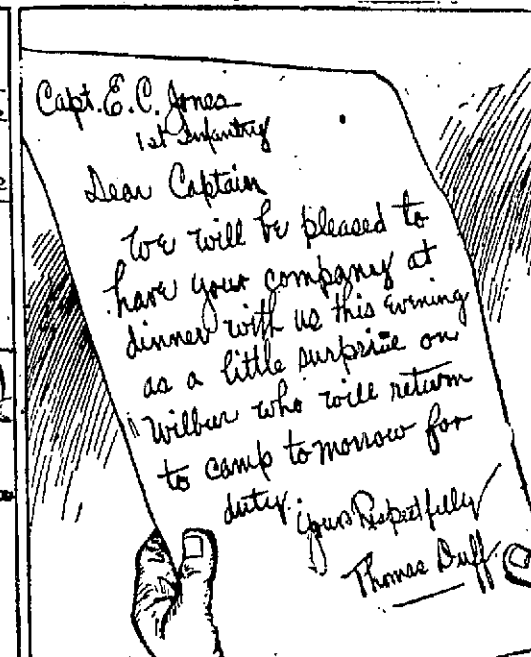 Capt. E. C. Jones
1st Infantry
Dear Captain
We will be pleased to
have your company at
dinner with us this evening
as a little surprise on
Wilbur who will return
to camp tomorrow for
duty.
Yours Respectfully
Thomas Duff